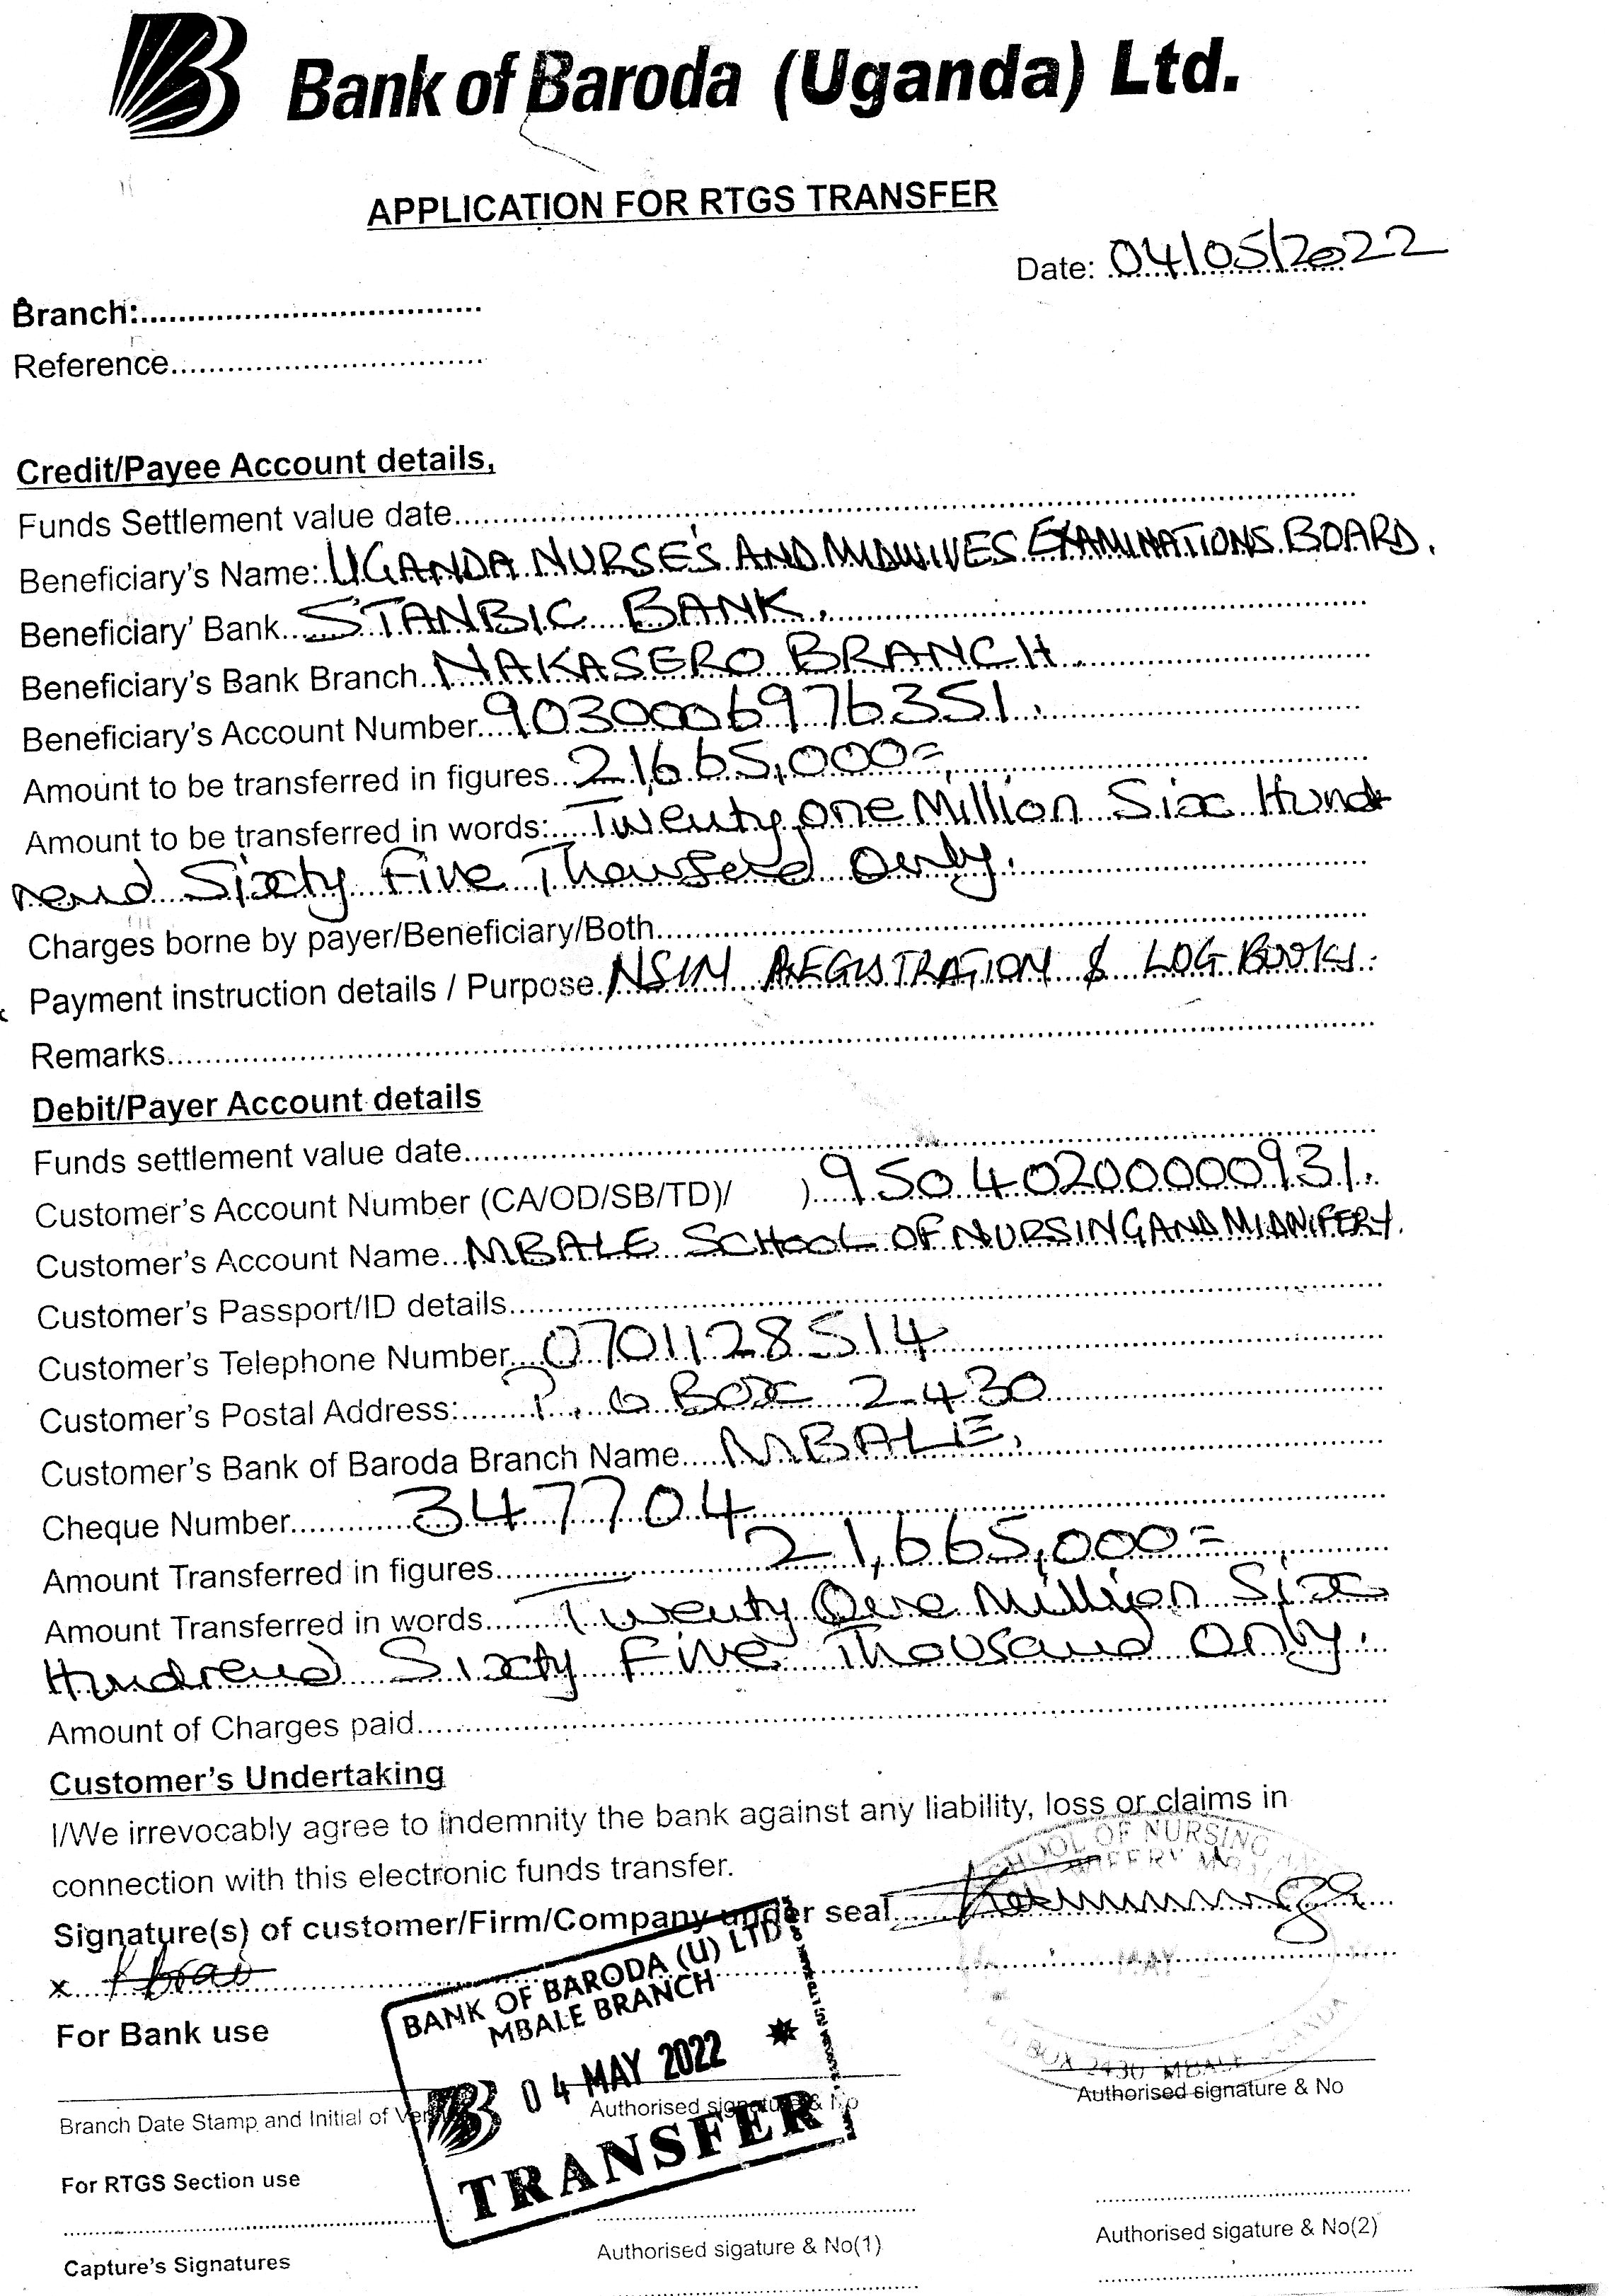 Bank of Baroda (Uganda) Ltd.
APPLICATION FOR RTGS TRANSFER
Date: 04/05/2022
Branch:
Reference
Credit/Payee Account details,
Funds Settlement value date
Beneficiary's Name: UGANDA NURSE'S AND MIDWIVES EXAMINATIONS BOARD.
Beneficiary' Bank STANBIC BANK.
Beneficiary's Bank Branch NAKASERO BRANCH
Beneficiary's Account Number 9030006976351.
Amount to be transferred in figures 21,665,000=
Amount to be transferred in words: Twenty one Million Six Hund
red Sixty Five Thousand Only.
Charges borne by payer/Beneficiary/Both
Payment instruction details / Purpose NSIM REGISTRATION & LOG BOOKS.
Remarks
Debit/Payer Account details
Funds settlement value date
Customer's Account Number (CA/OD/SB/TD)/ ) 95040200000931.
Customer's Account Name MBALE SCHOOL OF NURSING AND MIDWIFERY.
Customer's Passport/ID details
Customer's Telephone Number 0701128514
Customer's Postal Address: P. O BOX 2430
Customer's Bank of Baroda Branch Name MBALE.
Cheque Number 347704
Amount Transferred in figures 21,665,000=
Amount Transferred in words Twenty One Million Six
Hundred Sixty Five Thousand Only.
Amount of Charges paid
Customer's Undertaking
I/We irrevocably agree to indemnity the bank against any liability, loss or claims in
connection with this electronic funds transfer.
SCHOOL OF NURSING
Signature(s) of customer/Firm/Company under seal
x
BANK OF BARODA (U) LTD
MBALE BRANCH
04 MAY 2022
TRANSFER
MAY
BOX 2430 MBALE UGANDA
For Bank use
Branch Date Stamp and Initial of
Authorised signature & No
Authorised signature & No
For RTGS Section use
Capture's Signatures
Authorised sigature & No(1)
Authorised sigature & No(2)